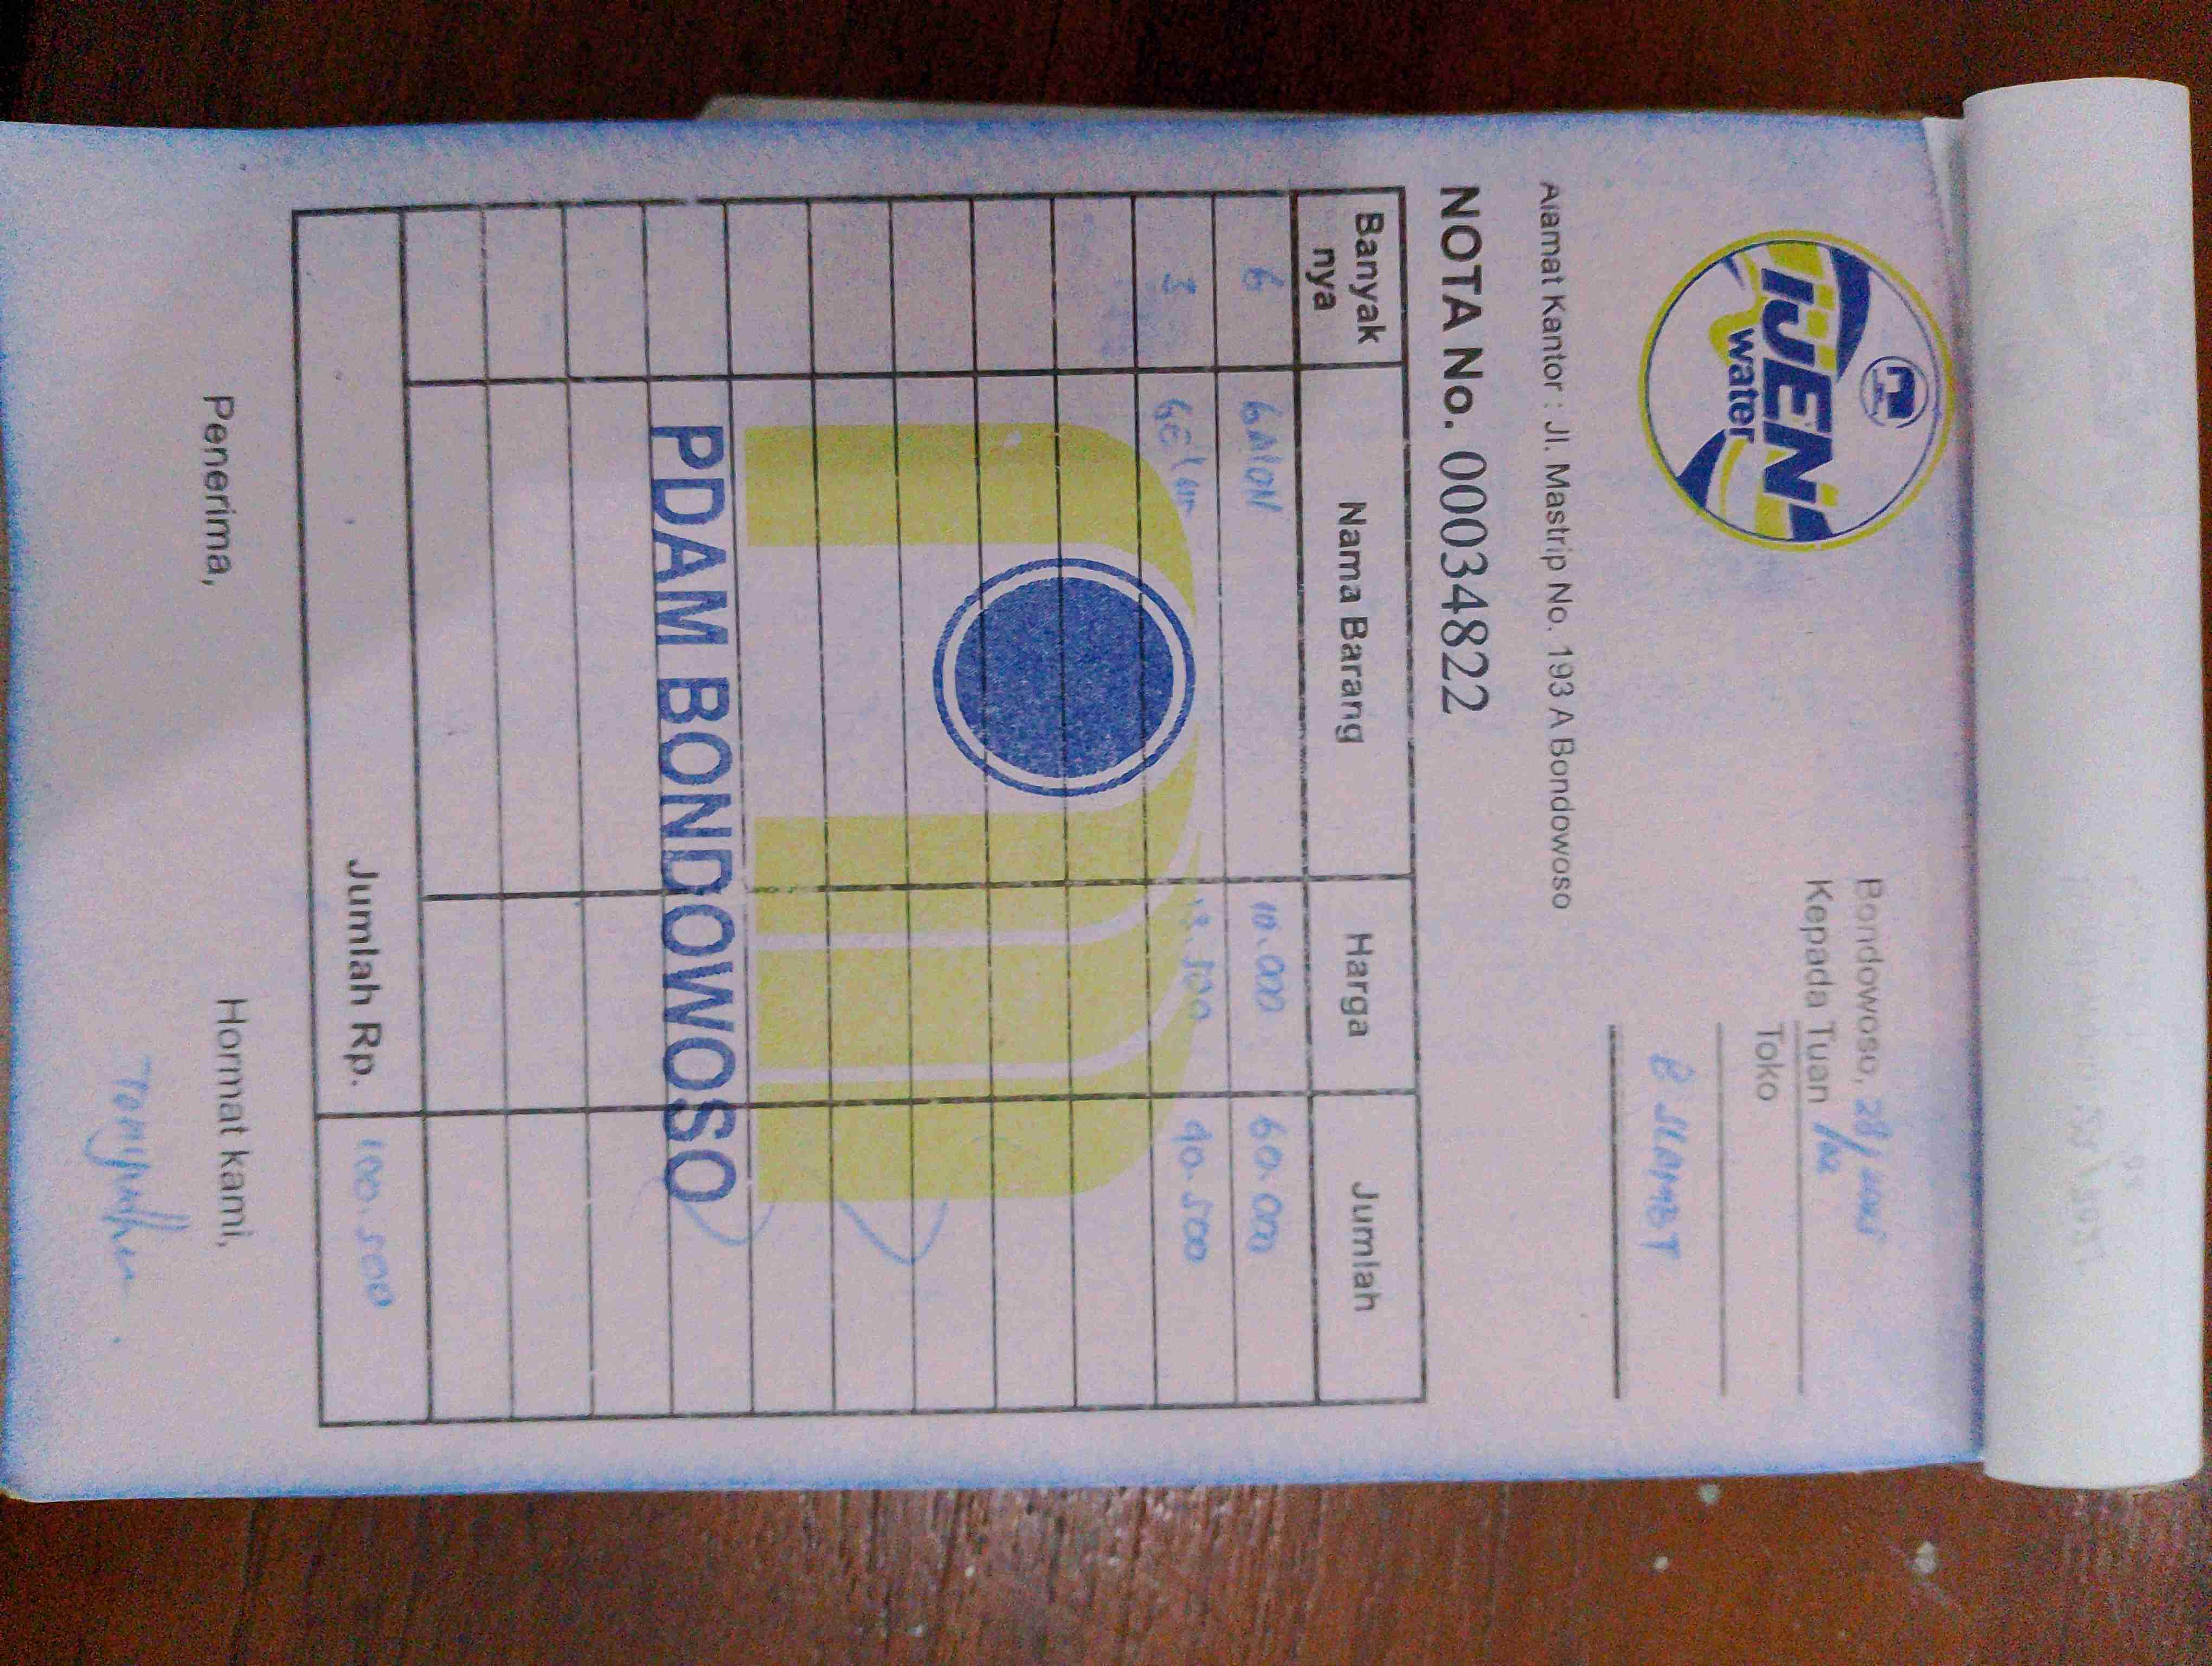 IJEN
water
Bondowoso, 28/
Kepada Tuan
Toko
B SLAMET
Alamat Kantor : Jl. Mastrip No. 193 A Bondowoso
NOTA No. 00034822
Banyak nya Nama Barang Harga Jumlah
6 GALON 10.000 60.000
3 13.500 40.500
PDAM BONDOWOSO
Jumlah Rp. 100.500
Penerima, Hormat kami,